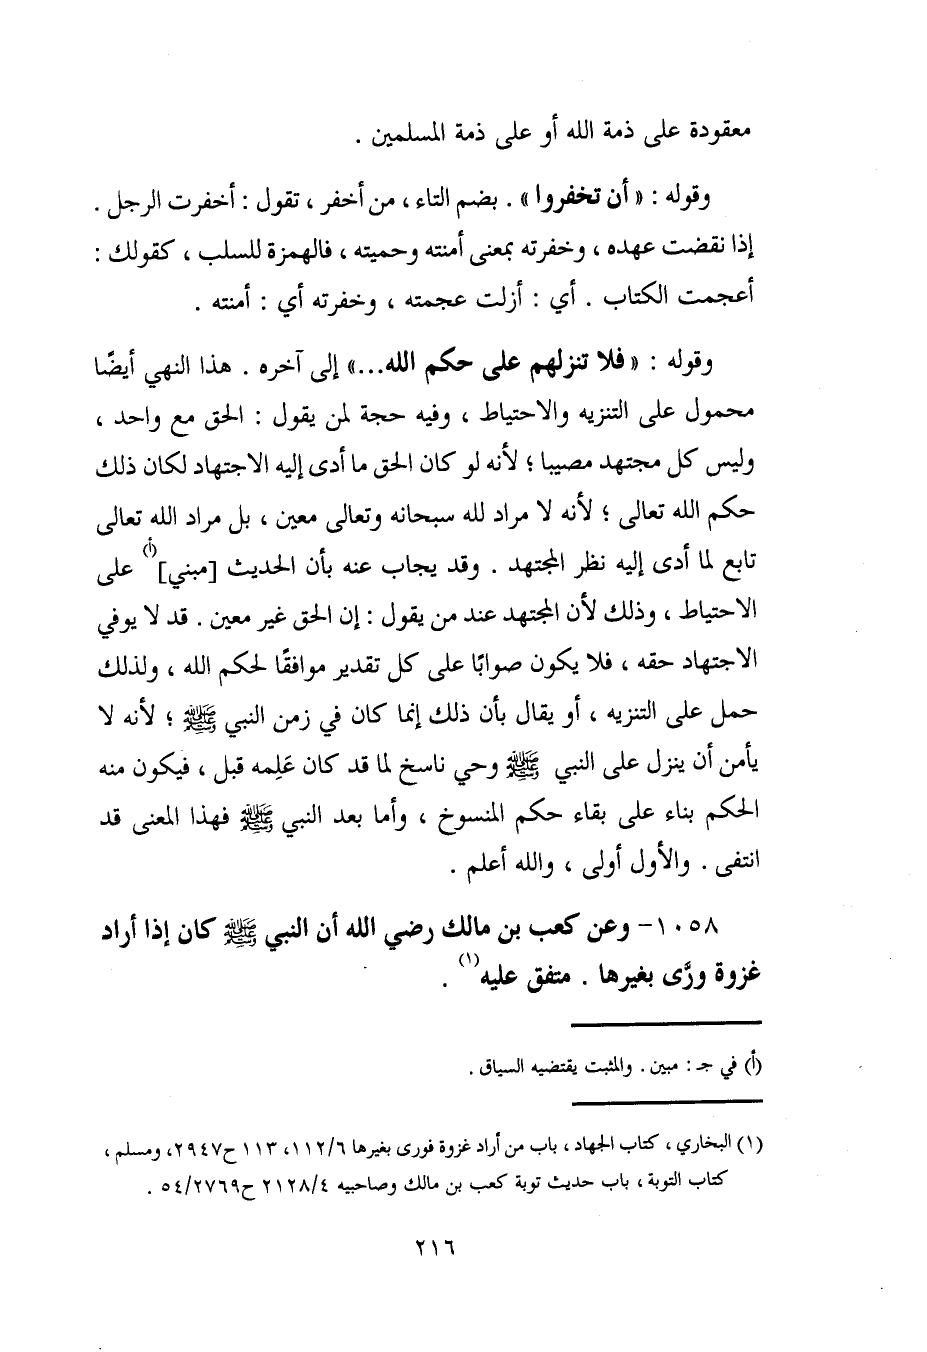 معقودة على ذمة الله أو على ذمة المسلمين .
وقوله : « أن تخفروا » . بضم التاء ، من أخفر ، تقول : أخفرت الرجل .
إذا نقضت عهده ، وخفرته بمعنى أمنته وحميته ، فالهمزة للسلب ، كقولك :
أعجمت الكتاب . أي : أزلت عجمته ، وخفرته أي : أمنته .
وقوله : « فلا تنزلهم على حكم الله...» إلى آخره . هذا النهي أيضًا
محمول على التنزيه والاحتياط ، وفيه حجة لمن يقول : الحق مع واحد ،
وليس كل مجتهد مصيبا ؛ لأنه لو كان الحق ما أدى إليه الاجتهاد لكان ذلك
حكم الله تعالى ؛ لأنه لا مراد لله سبحانه وتعالى معين ، بل مراد الله تعالى
تابع لما أدى إليه نظر المجتهد . وقد يجاب عنه بأن الحديث [مبني](أ) على
الاحتياط ، وذلك لأن المجتهد عند من يقول : إن الحق غير معين . قد لا يوفي
الاجتهاد حقه ، فلا يكون صوابًا على كل تقدير موافقًا لحكم الله ، ولذلك
حمل على التنزيه ، أو يقال بأن ذلك إنما كان في زمن النبي ﷺ ؛ لأنه لا
يأمن أن ينزل على النبي ﷺ وحي ناسخ لما قد كان عَلِمه قبل ، فيكون منه
الحكم بناء على بقاء حكم المنسوخ ، وأما بعد النبي ﷺ فهذا المعنى قد
انتفى . والأول أولى ، والله أعلم .
١٠٥٨- وعن كعب بن مالك رضي الله أن النبي ﷺ كان إذا أراد
غزوة ورَّى بغيرها . متفق عليه(١) .
(أ) في جـ : مبين . والمثبت يقتضيه السياق .
(١) البخاري ، كتاب الجهاد ، باب من أراد غزوة فورى بغيرها ١١٢/٦، ١١٣ ح٢٩٤٧، ومسلم ،
كتاب التوبة ، باب حديث توبة كعب بن مالك وصاحبيه ٢١٢٨/٤ ح٥٤/٢٧٦٩ .
٢١٦